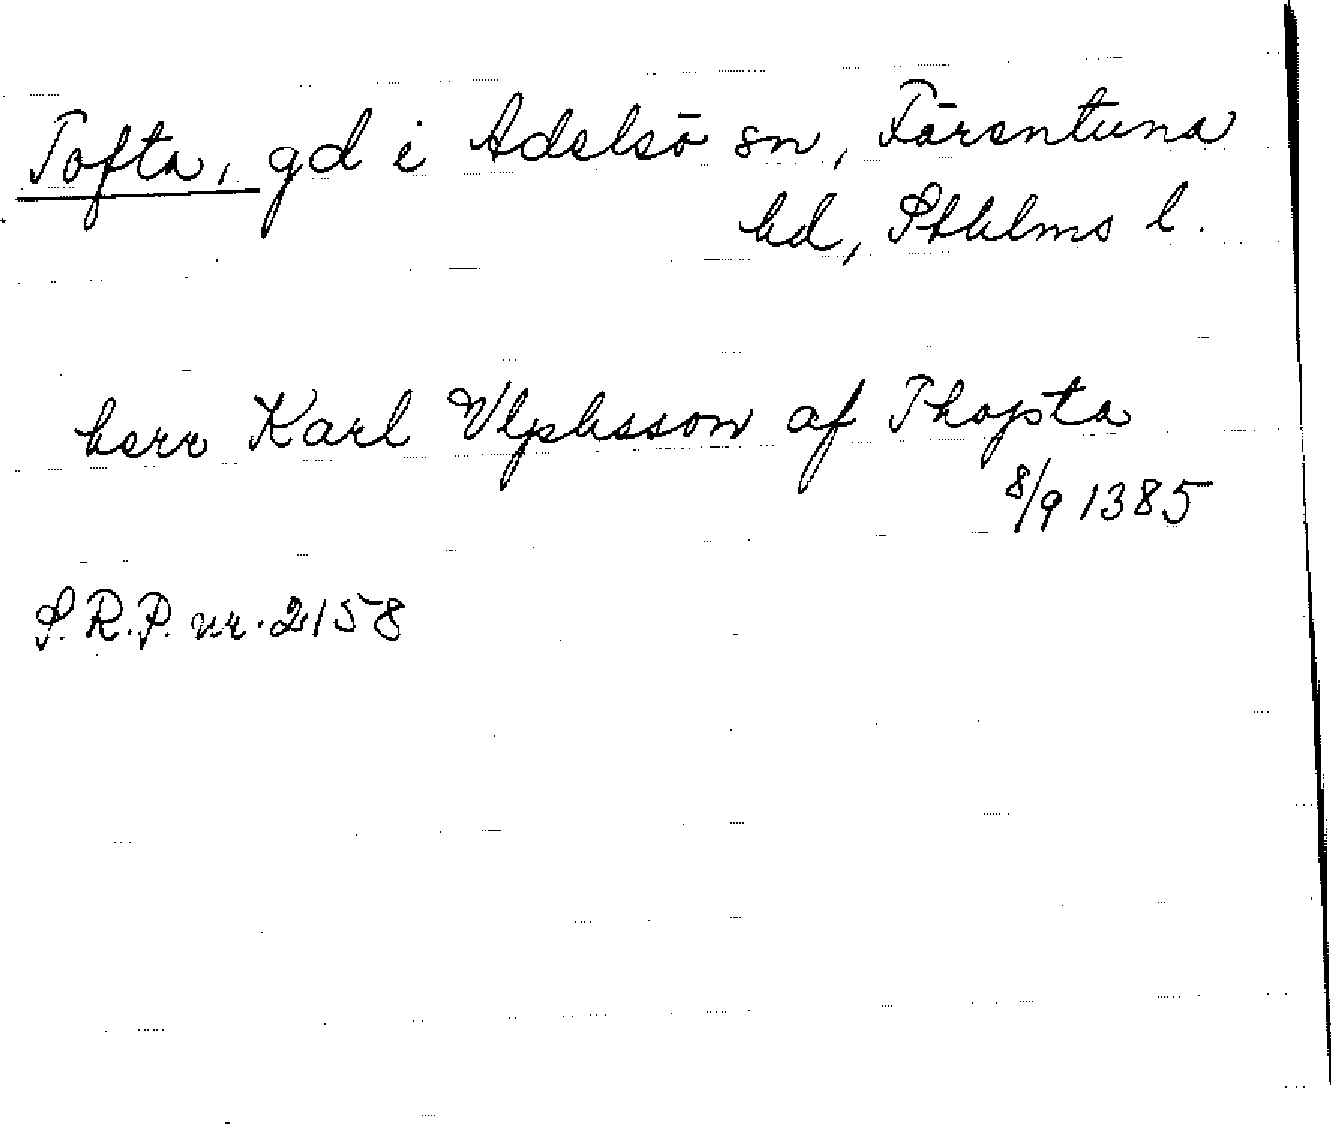 Tofta, gd i Adelsö sn, Färentuna
hd, Sthlms l.
herr Karl Vlphsson af Thopta
8/9 1385
S.R.P. nr. 2158